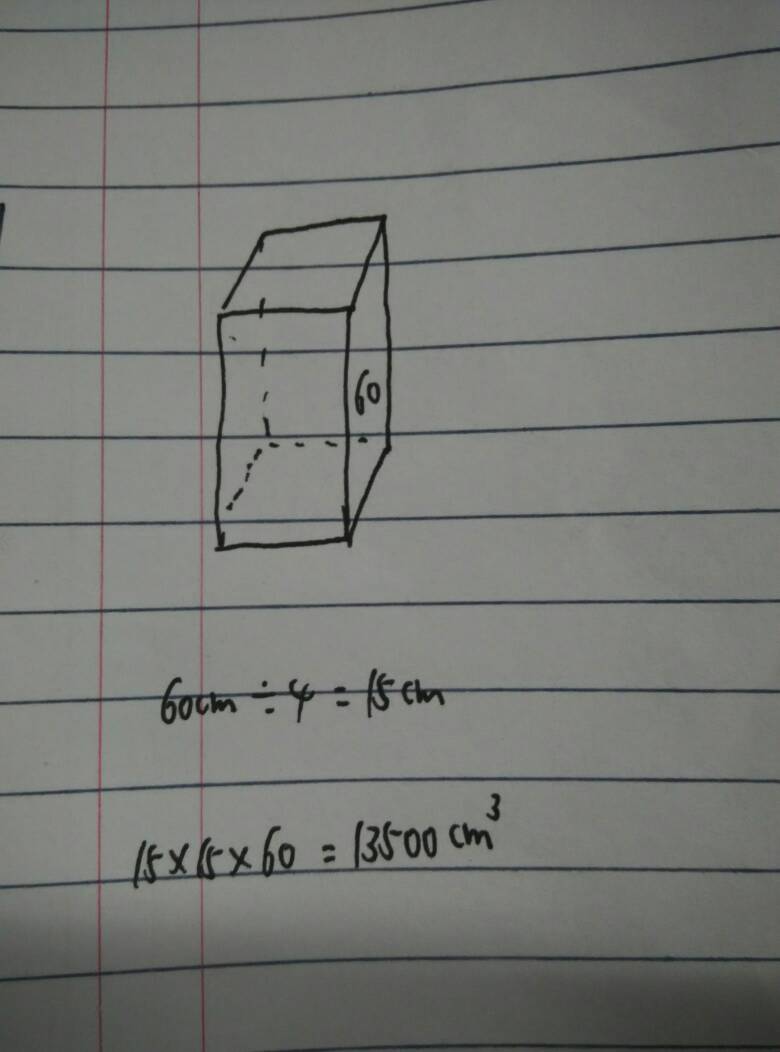 60
60cm ÷ 4 = 15cm
15×15×60 = 13500 cm³